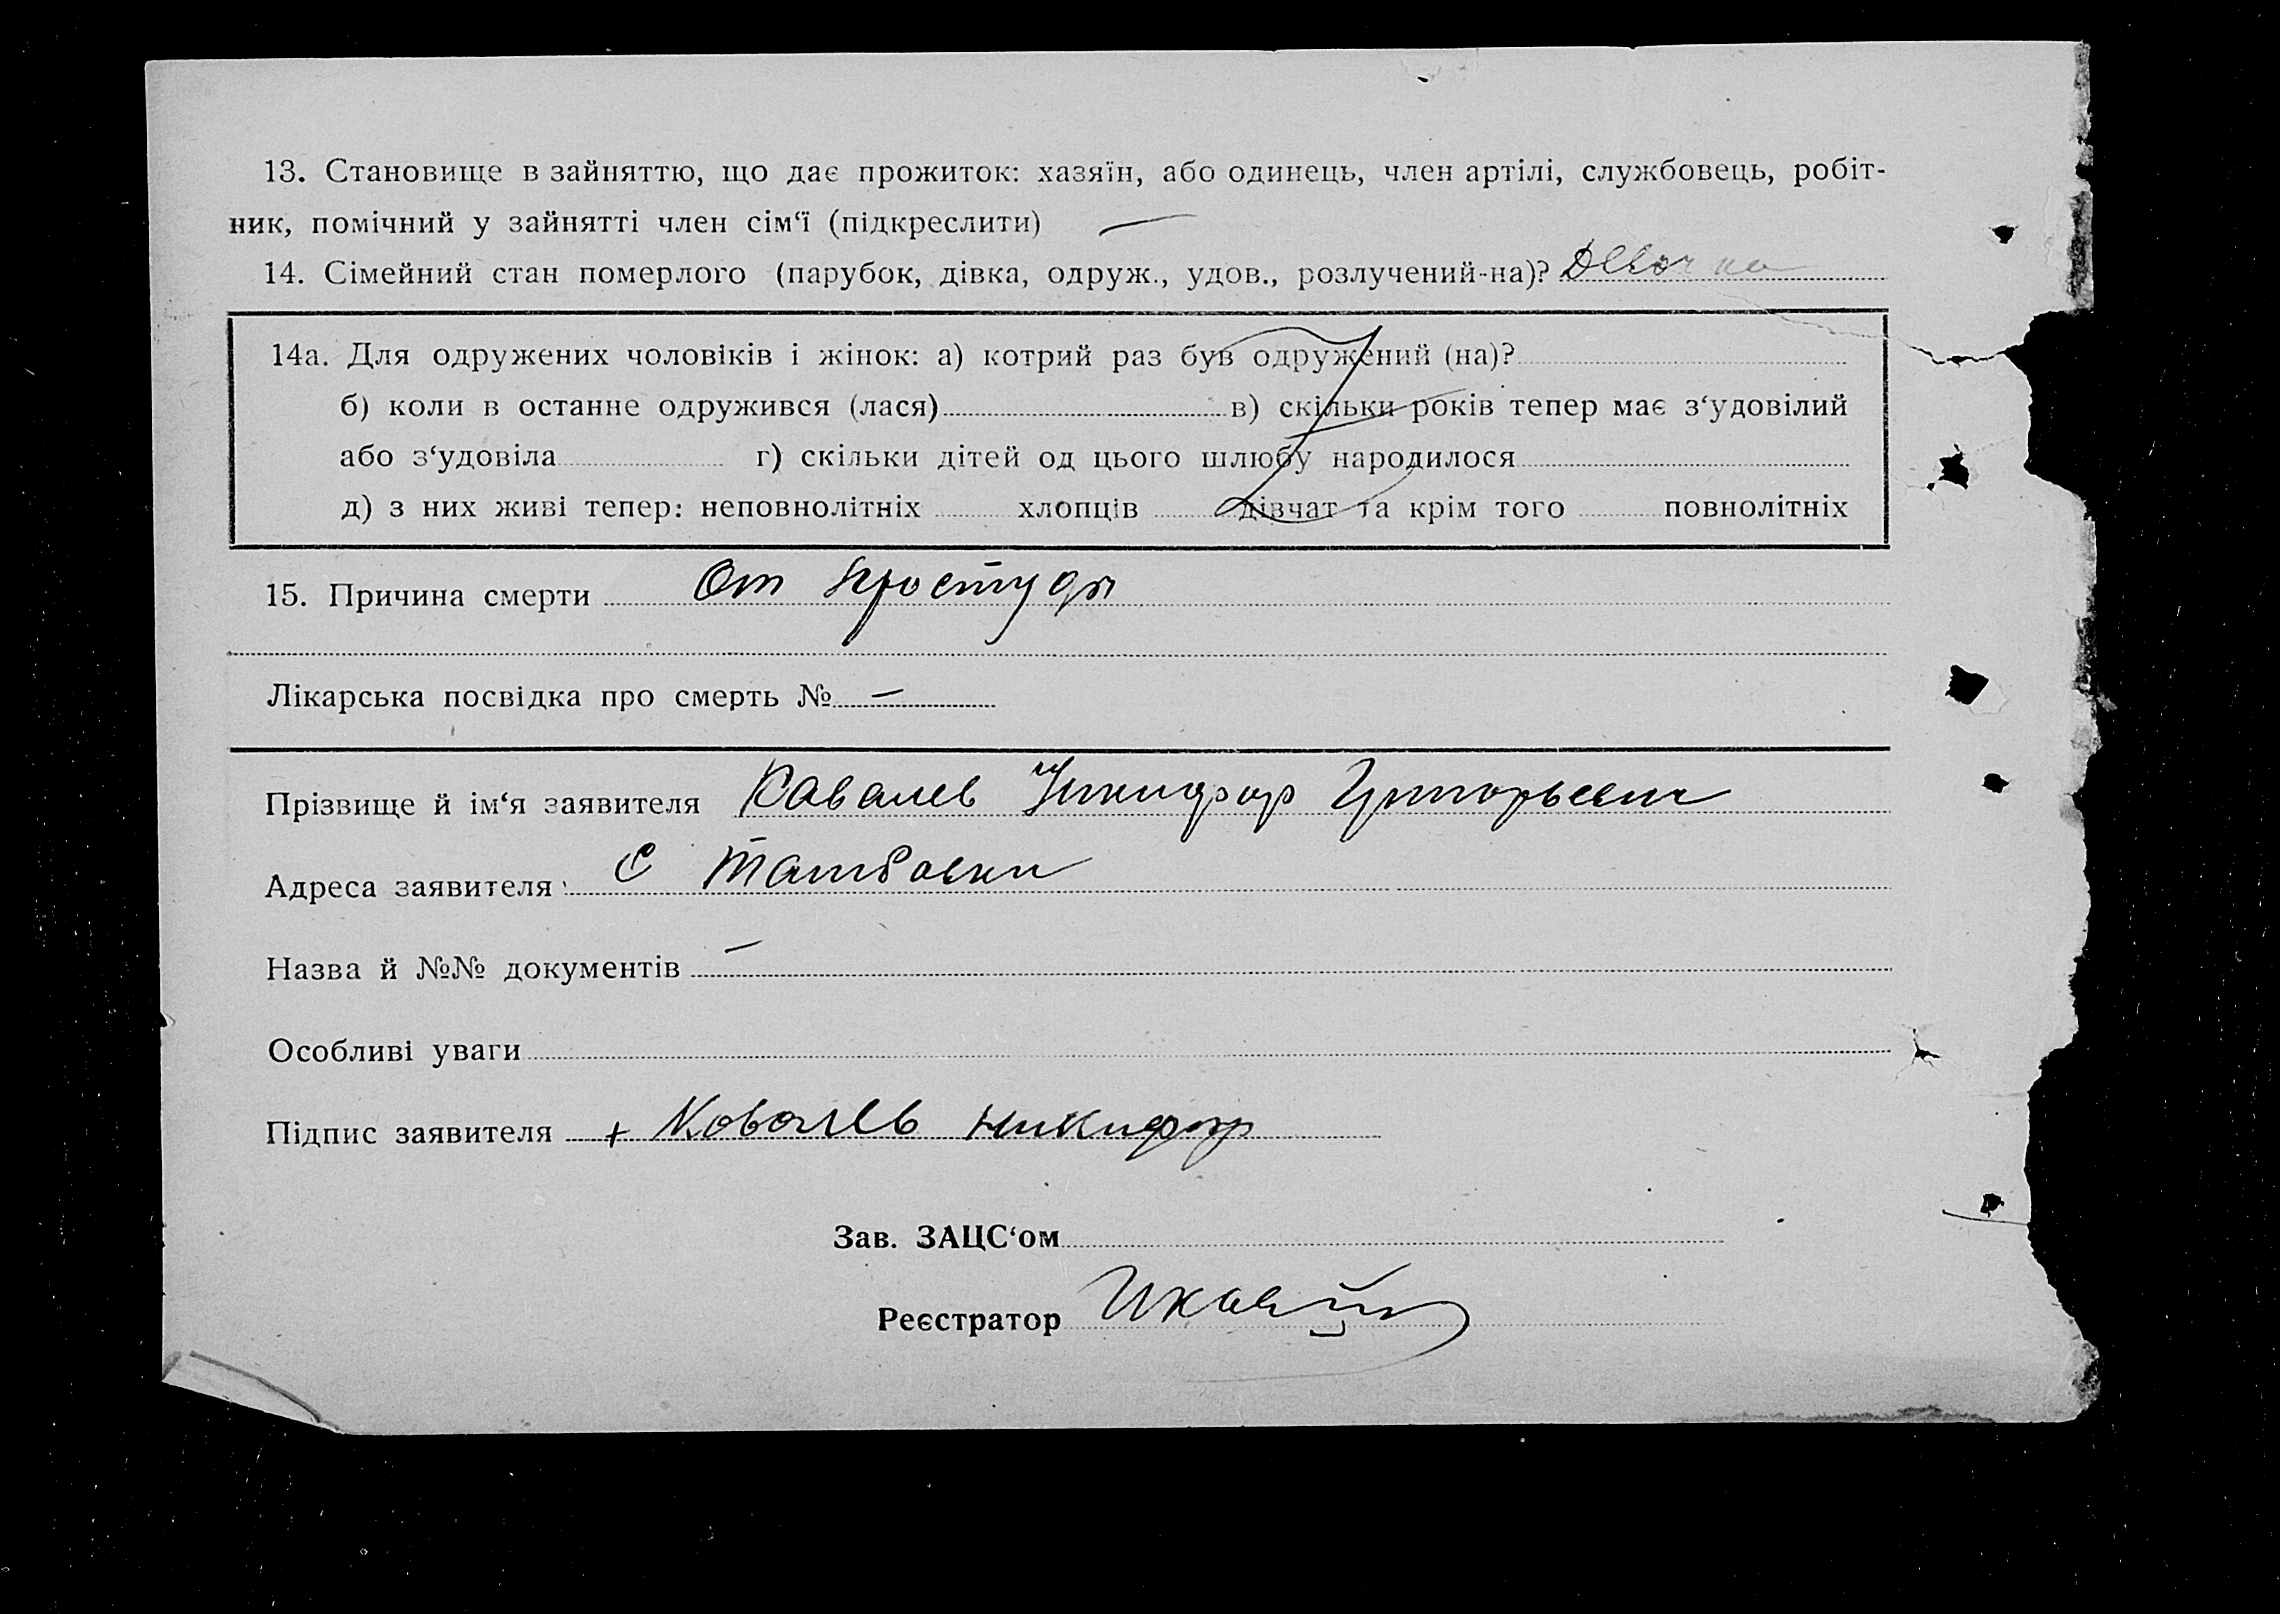 13. Становище в зайняттю, що дає прожиток: хазяїн, або одинець, член артілі, службовець, робіт-
ник, помічний у зайнятті член сім‘ї (підкреслити) —
14. Сімейний стан померлого (парубок, дівка, одруж., удов., розлучений-на)? Девочка
14а. Для одружених чоловіків і жінок: а) котрий раз був одружений (на)?
б) коли в останнє одружився (лася) в) скільки років тепер має з‘удовілий
або з‘удовіла г) скільки дітей од цього шлюбу народилося
д) з них живі тепер: неповнолітніх хлопців дівчат та крім того повнолітніх
15. Причина смерти От простуды
Лікарська посвідка про смерть № —
Прізвище й ім‘я заявителя Ковалев Никифор Григорьевич
Адреса заявителя С Тамбовки
Назва й №№ документів —
Особливі уваги
Підпис заявителя + Ковалев Никифор
Зав. ЗАЦС‘ом
Реєстратор